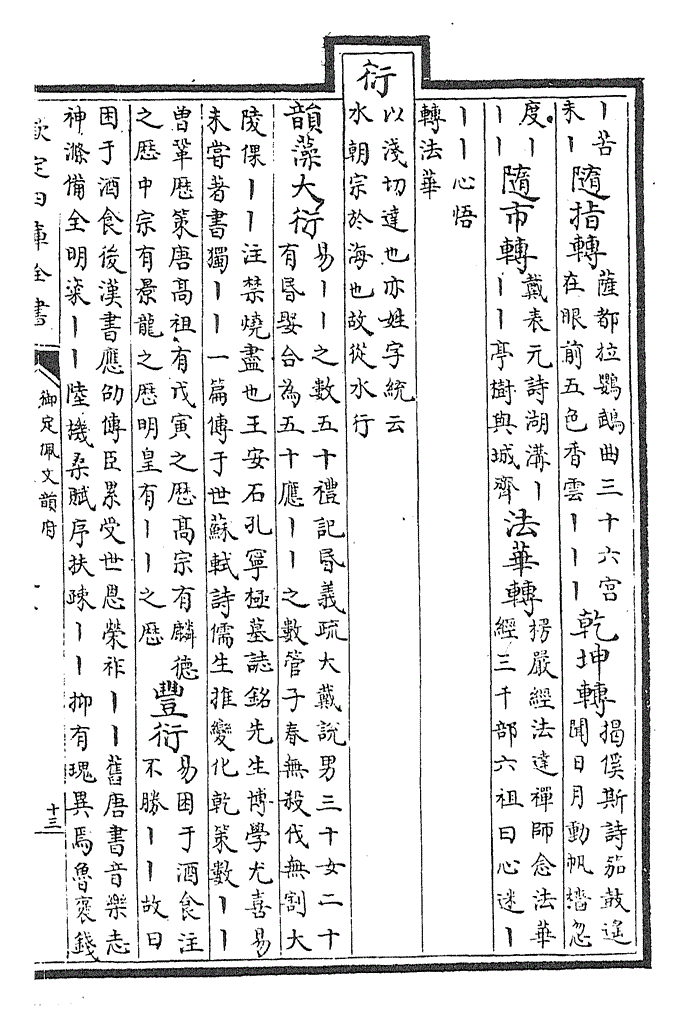 丨苦
耒丨
隨指轉
薩都拉鸚鵡曲三十六宮
在眼前五色香雲丨丨丨
乾坤轉
揭傒斯詩茄鼓遙
聞日月動帆檣忽
度丨
丨丨
隨市轉
戴表元詩湖溝丨
丨丨亭樹與城齊
法華轉
楞嚴經法達禪師念法華
經三千部六祖曰心迷丨
丨丨心悟
轉法華
衍
以淺切達也亦姓字統云
水朝宗於海也故從水行
韻藻大衍
易丨丨之數五十禮記昏義疏大戴說男三十女二十
有昏娶合為五十應丨丨之數管子春無殺伐無割大
陵倮丨丨注禁燒盡也王安石孔寧極墓誌銘先生博學尤喜易
未嘗著書獨丨丨一篇傳于世蘇軾詩儒生推變化乾策數丨丨
曾鞏歷策唐高祖有戊寅之歷高宗有麟德
之歷中宗有景龍之歷明皇有丨丨之歷
豐衍
易困于酒食注
不勝丨丨故曰
困于酒食後漢書應劭傳臣累受世恩榮祚丨丨舊唐書音樂志
神滌備全明粢丨丨陸機桑賦序扶疎丨丨抑有瑰異焉魯褒錢
欽定四庫全書
御定佩文韻府
十三